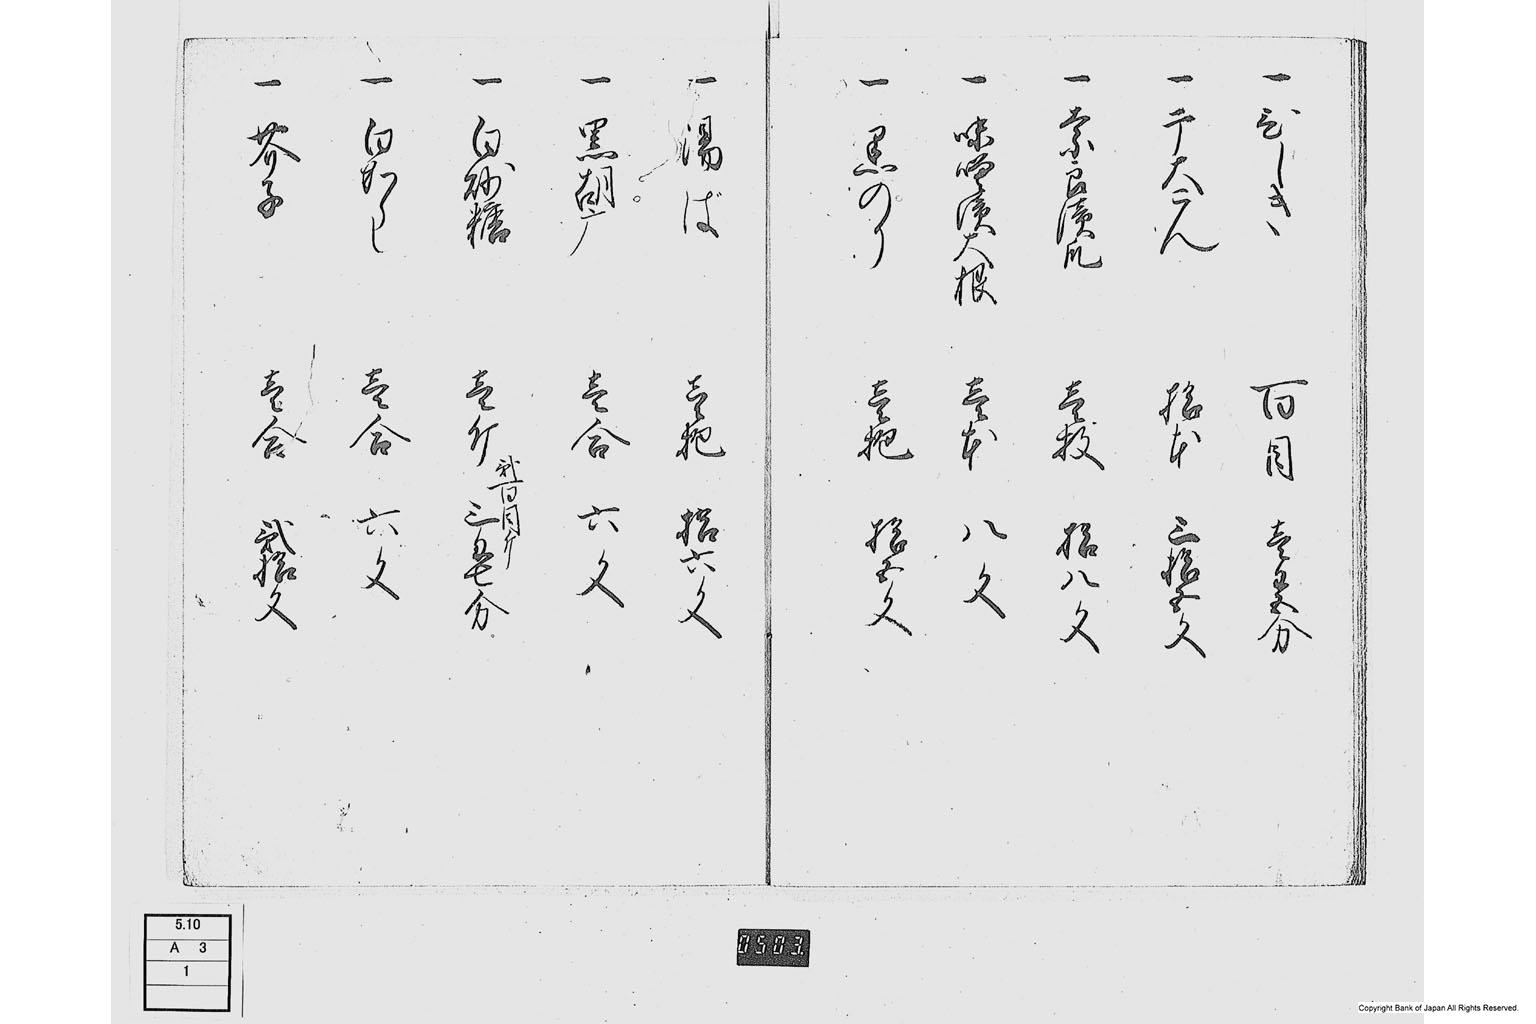 一 ひしき 百目 壱匁五分
一 干大こん 拾本 三拾五文
一 奈良漬瓜 壱枚 拾八文
一 味噌漬大根 壱本 八文
一 黒のり 壱把 拾五文
一 湯ば 壱把 拾六文
一 黒胡麻 壱合 六文
一 白砂糖 壱斤 弐百目斤 三匁七分
一 白からし 壱合 六文
一 芥子 壱合 弐拾文
5.10
A 3
1
0503
Copyright Bank of Japan All Rights Reserved.